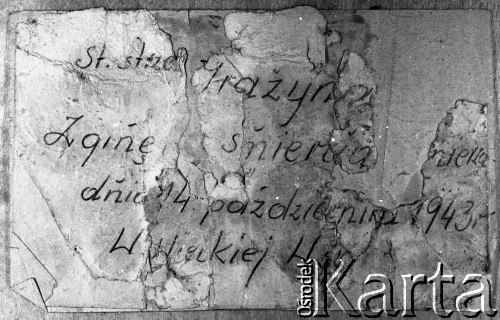 St. strz Grażyna
Zginę śmiercią
dnia 14 październina 1943 r
W Wielkiej W
Ośrodek
Karta